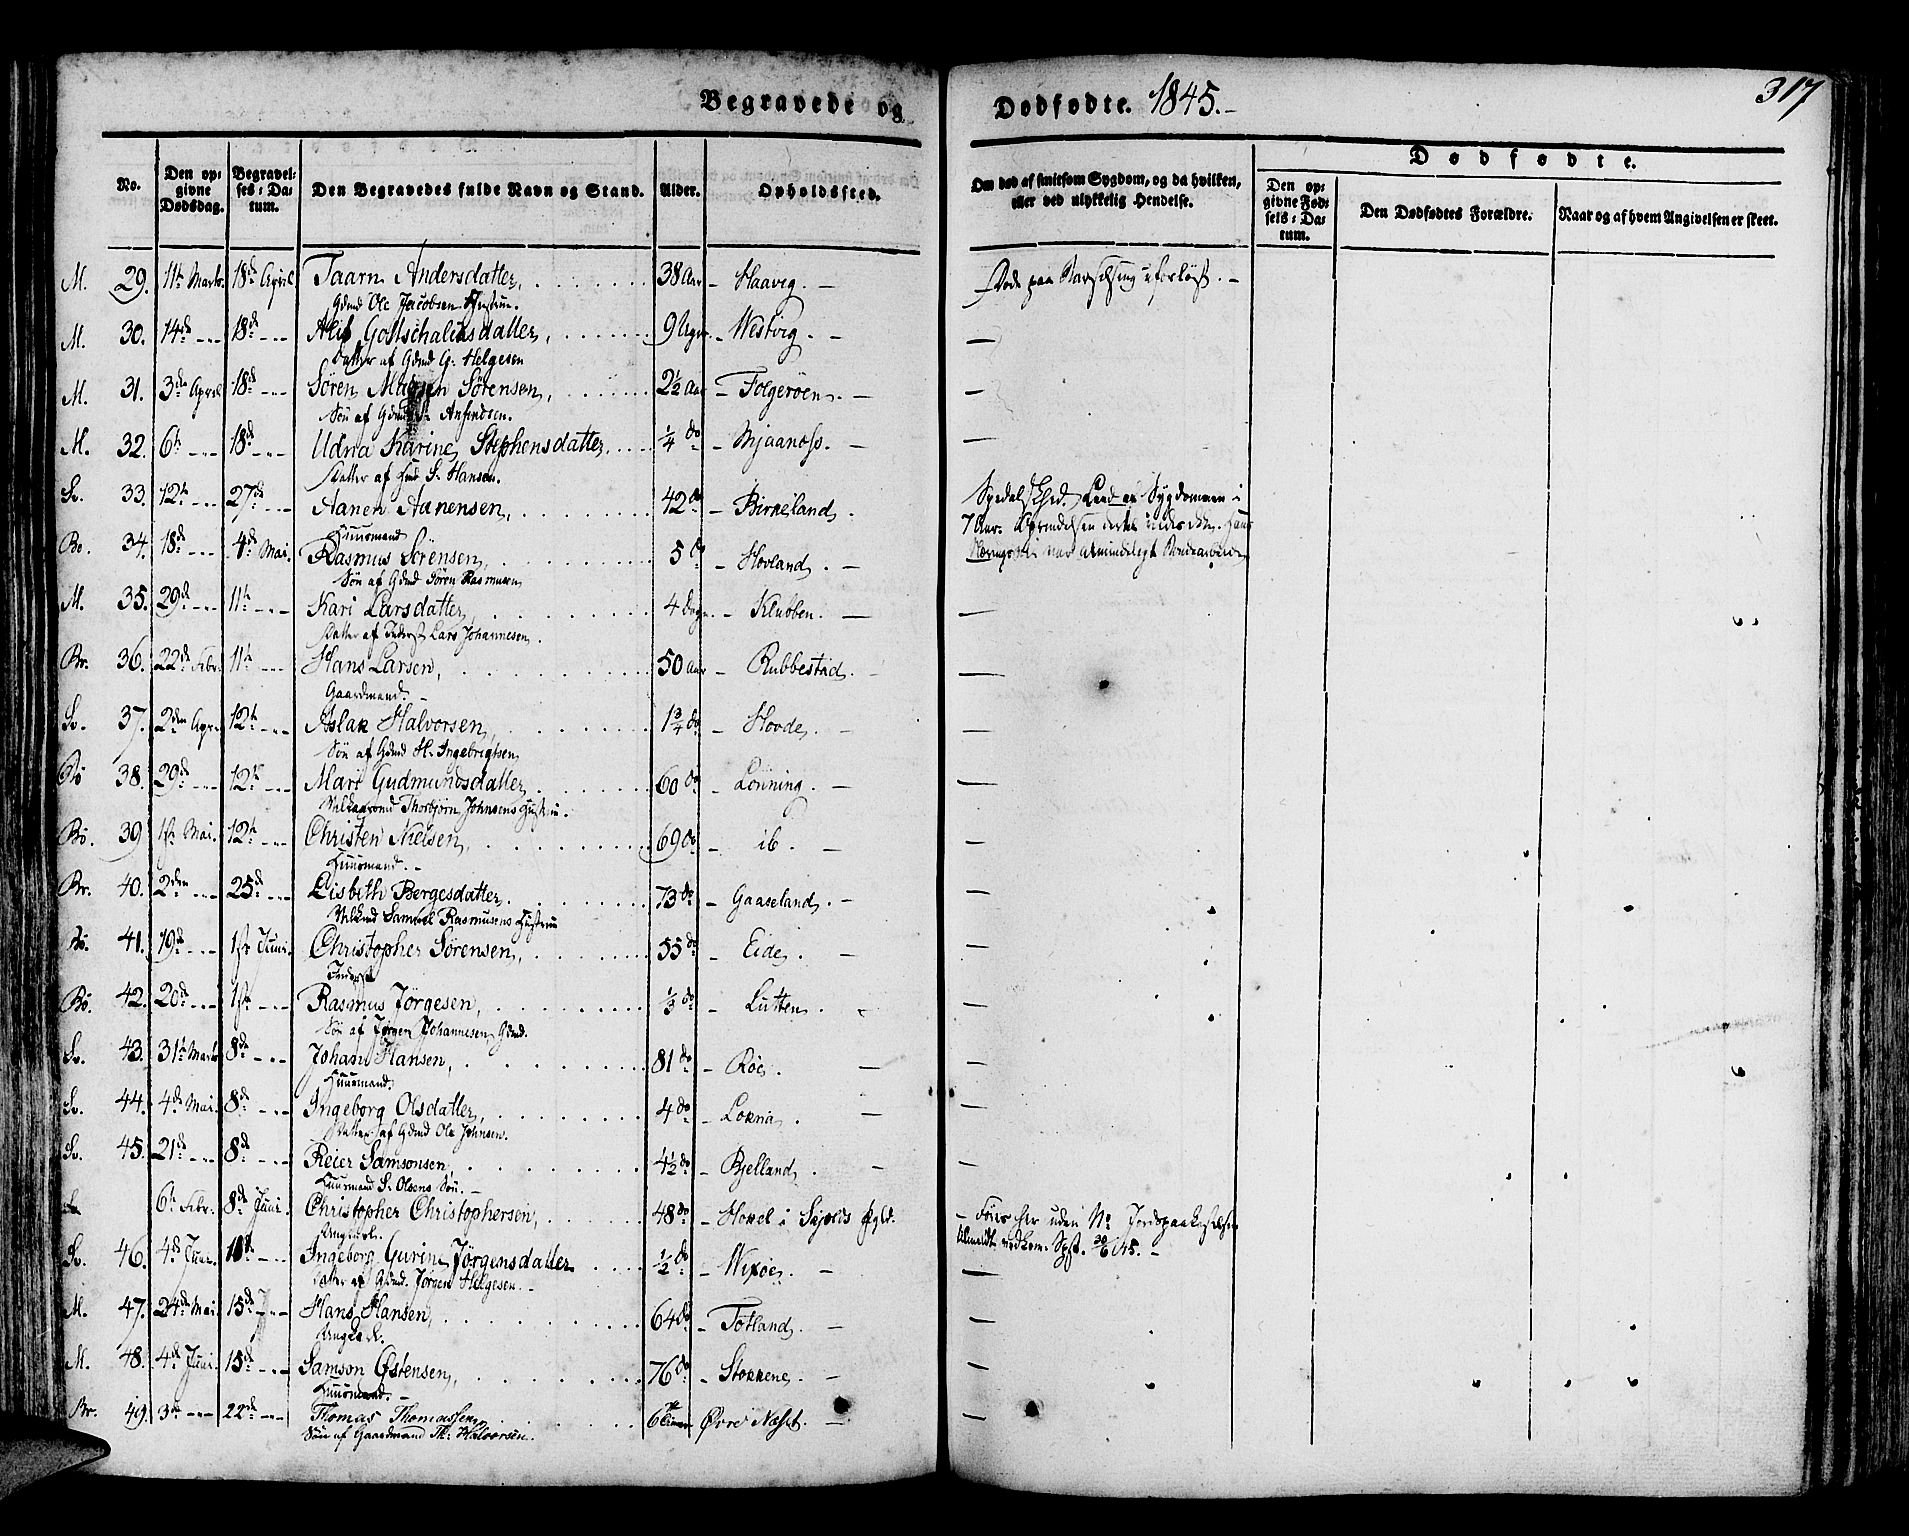 Begravede og Dødfødte. 1845.-
317
No.
Den opgivne Dødsdag.
Begravelses-Datum.
Den Begravedes fulde Navn og Stand.
Alder.
Opholdssted.
Om død af smitsom Sygdom, og da hvilken, eller ved ulykkelig Hendelse.
Dødfødte.
Den opgivne Fødsels-Datum.
Den Dødfødtes Forældre.
Naar og af hvem Angivelsen er skeet.
M. 29. 11te Marts. 18de April Taarn Andersdatter, 38 Aar - Haavig. -
Gdmd Ole Jacobsens Hustrue.
M. 30. 14de - - 18de - - Gottschalksdatter, 9 Uger - Westvig. -
Datter af Gdmd G. Helgesen
M. 31. 3de April 18de - - Søren Sørensen, 2½ Aar - Folgerøen. -
Søn af Anfindsen.
M. 32. 6te - - 18de - - Udna Karine Stephensdatter ¼ do - Mjaanæss. -
Datter af Hmd S. Hansen.
Sv. 33. 12te - - 27de - - Aanen Aanensen, 42 do - Birkeland.
Huusmand
Spedalskhed. Leed af Sygdommen i
7 Aar.
Bø. 34. 18de - - 4de Mai. Rasmus Sørensen, 5 do - Hovland. -
Søn af Gdmd Sören Rasmusen
M. 35. 29de - - 11te - - Kari Larsdatter, 4 Dage - Klubben. -
Datter af Inderst Lars Johannesen.
Br. 36. 22de Febr. 11te - - Hans Larsen, 50 Aar Rubbestad. -
Gaardmand. -
Sv. 37. 2den Apr. 12te - - Aslak Halvorsen, 1¾ do - Hovde. -
Søn af Gdmd H. Ingebrigtsen
Bø 38. 29de - - 12te - - Mari Gudmundsdatter, 60 do - Lönning. -
Vilkaarsmd Thorbjörn Johnsens Hustrue.
Bø. 39 1ste Mai. 12te - - Christen Nielsen, 69 do - ib. -
Huusmand. -
Br. 40. 2den - - 25de - - Lisbeth Børgesdatter, 73 do - Gaaseland. -
Samuel Rasmusens Hustrue
Bø. 41. 19de - - 1ste Juni. Christopher Sørensen, 55 do - Eide. -
Inderst
Bø. 42. 20de - - 1ste - - Rasmus Jörgesen, ⅓ do - Lutten.
Søn af Jörgen Johannesen Gdmd.
Sv. 43. 31te Marts 8de - - Johan Hansen, 81 do - Röe. -
Huusmand.
Sv. 44. 4de Mai. 8de - - Ingeborg Olsdatter, 4 do - Lokna. -
Datter af Gdmd Ole Johnsen.
Sv. 45. 21de - - 8de - - Reier Samsonsen, 4½ do - Bjelland. -
Huusmand S. Olsens Søn. -
6te Febr. 8de Juni. Christopher Christophersen, 48 do - Hokel i Skjolds Pgld.
- Føres her uden No
30/6 45. -
Sv. 46. 4de Juni. - - Ingeborg Gurine Jørgensdatter ½ do - Wixöe. -
Datter af Gdmd. Jørgen Helgesen. -
M. 47. 24de Mai. 15de - - Hans Hansen, 64 do - Totland. -
M. 48. 4de Juni. 15de - - Samson Østensen, 76 do - Stokkene. -
Huusmand. -
Br. 49. 3die - - 22de - - Thomas Thomassen 6 Øvre Næset. -
Søn af Gaardmand Th: Halvorsen.